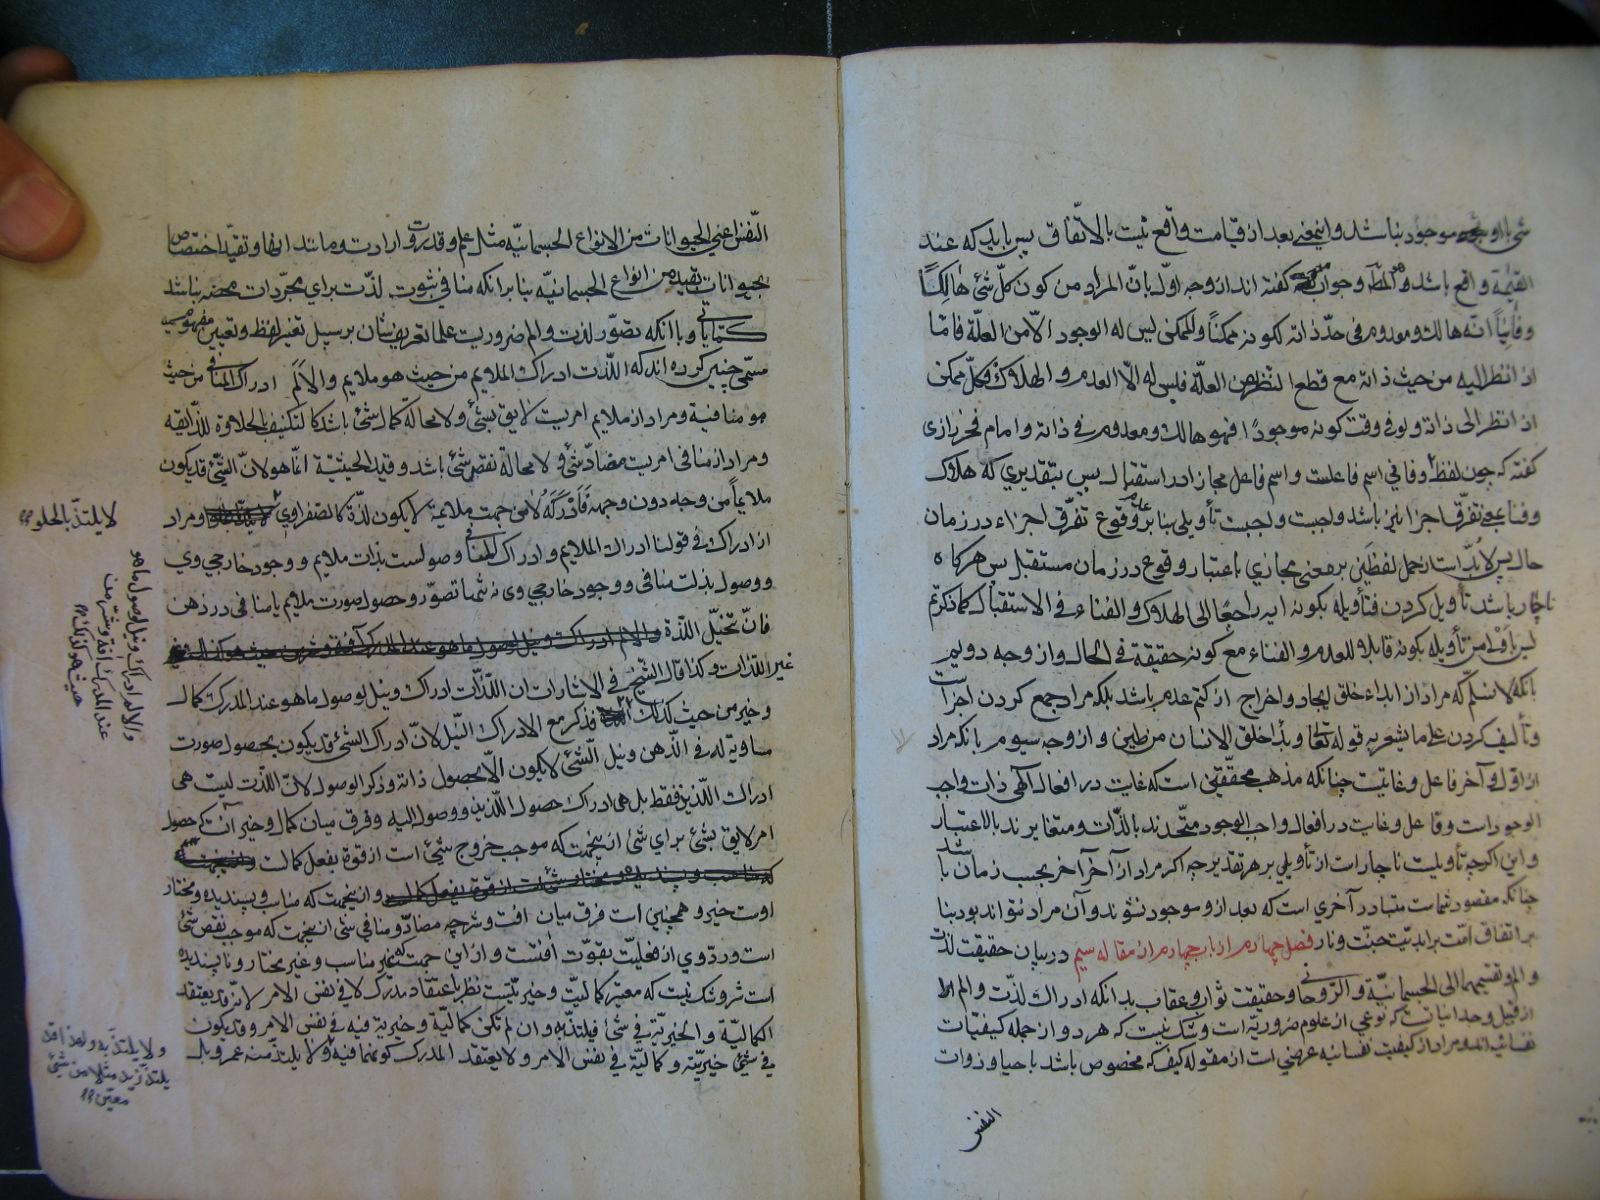 شی با او موجود نباشد و اینمعنی بعد از قیامت واقع نیست بالاتّفاق پس باید که عند
القیمة واقع باشد و هو المط وجواب گفته اند از وجه اول بانّ المراد من کون کلّ شئ هالکاً
وفانیاً انّه هالك ومعدوم فی حدّ ذاته لکونه ممکناً والممکن لیس له الوجود الّا من العلّة فامّا
اذا نظر الیه من حیث ذاته مع قطع النّظر عن العلّة فلیس له الّا العدم والهلاك فکلّ ممکن
اذا نظر الی ذاته ولو فی وقت کونه موجوداً فهو هالك ومعدوم فی ذاته وامام فخر رازی
گفته که چون لفظ وفانی اسم فاعلست واسم فاعل مجاز در استقبال پس بتقدیری که هلاك
وفنا بمعنی تفرّق اجزا نیز باشد واجبست تأویلی بنا بر عدم وقوع تفرّق اجزاء در زمان
حال پس لابدّ است از حمل لفظین بر معنی مجازی باعتبار وقوع در زمان مستقبل پس هرکاه
ناچار باشد تأویل کردن فتأویله بکونه ایر راجعًا الی الهلاك والفناء فی الاستقبال کما ذکرتم
لیس باَوْلی من تأویله بکونه قابلا للعدم والفناء مع کونه حقیقة فی الحال واز وجه دویم
بآنکه لانسلّم که مراد از ابداء خلق ایجاد واخراج از کتم عدم باشد بلکه مراد جمع کردن اجزاست
وتألیف کردن علی ما یشعر به قوله تعا وبدأ خلق الانسان من طین واز وجه سیوم بانکه مراد
از اوّل وآخر فاعل وغایتست چنانکه مذهب محقّقین است که غایت در افعال الهی ذات واجب
الوجود است وفاعل وغایت در افعال واجب الوجود متّحدند بالذّات ومتغایرند بالاعتبار
واین اکرچه تأویلیست ناچار است از تأویلی بر هر تقدیر چه اکر مراد از آخر آخر بحسب زمان باشد
چنانکه مقصود شماست متبادر آخری است که بعد ازو موجود نشود وآن مراد نتواند بود بنا
بر اتفاق امّت بر ابدیّت جنّت ونار فصل چهارم از باب چهارم از مقاله سیم در بیان حقیقت لذّت
والم وتقسیمهما الی الجسمانیّة والرّوحانی وحقیقت ثواب وعقاب بدانکه ادراك لذّت والم
از قبیل وجدانیات که نوعی از علوم ضروریّه است وشك نیست که هر دو از جمله کیفیّات
نفسانیه اند ومراد از کیفیت نفسانیه عرضی است از مقوله کیف که مخصوص باشد باحیا وذوات
النفس
النّفس اعنی الحیوانات من الانواع الجسمانیّه مثل علم وقدرت وارادت ومانند اینها وتقیّد اختصاص
بحیوانات بقید من انواع الجسمانیّه بنا بر انکه منافی ثبوت لذّت برای مجرّدات محضه نباشد
وبا انکه تصوّر لذت والم ضروریست علما تعریفشان بر سبیل تغیر لفظ وتعیین مفهوم
مسمّی چنین کرده اند که اللّذت ادراك الملایم من حیث هو ملایم والاَلَم ادراك المنافی من حیث
هو منافیة ومراد از ملایم امریست لایق بشئ ولامحاله کمال شئ باشد کالتکیّف بالحلاوة للذّائقه
ومراد از منافی امریست مضادّ شئ و لامحالة نقص شئ باشد وقید الحیثیّة انّما هو لانّ الشّئ قد یکون
ملایماً من وجه دون وجه فَاَدْرَکَهُ لا من جهت ملایمة لا یکون لذّة کالصّفراوی ومراد
از ادراك فی قولنا ادراك الملایم وادراك المنافی وصولست بذات ملایم ووجود خارجی وی
ووصول بذات منافی ووجود خارجی وی نه تنها تصوّر وحصول صورت ملایم یا منافی در ذهن
فانّ تخیّل اللّذة
غیر اللذّات وکذا قال الشّیخ فی الاشارات ان اللذّات ادراك ونیل لوصول ما هو عند المدرك کمال
وخیر من حیث کذلك فذکر مع الادراك النّیل لانّ ادراك الشئ قد یکون بحصول صورت
مساویة له فی الذّهن ونیل الشّئ لا یکون الّا بحصول ذاته وذکر الوصول لانّ اللّذت لیست هی
ادراك اللّذیذ فقط بل هی ادراك حصول اللّذیذ ووصول الیه وفرق میان کمال وخیر آنست که حصول
امر لایق بشئ برای شئ ازینجهت که موجب خروج شئ است از قوة بفعل کمالست
وازینجهت که مناسب وپسندیده ومختار
اوست خیر وهمچنین است فرق میان آفت وشر چه مضادّ ومنافی شئ ازینجهت که موجب نقص شئ
است وردّ وی از فعلیّت بقوّت آفتست واز این جهت که غیر مناسب وغیر مختار وناپسندیده
است شر وشك نیست که معتبر کمالیّت وخیریّتست نظر باعتقاد مدرك لا فی نفس الامر لانّه قد یعتقد
الکمالیّة والخیریّة فی شئ فیلتذّ به وان لم تکن کمالیّة وخیریة فیه فی نفس الامر وقد یکون
فی شئ خیریّة وکمالیّة فی نفس الامر ولا یعتقد المدرك کونهما فیه ولا یلتذّ منه عمرو بل
لا یلتذّ بالحلو
والالم ادراك ونیل لوصول ما هو
عند المدرك آفة وشرّ من
حیث هو کذلك
ولا یلتذّ به ولهذا قد
یلتذّ زید مثلا من شئ
معیّن